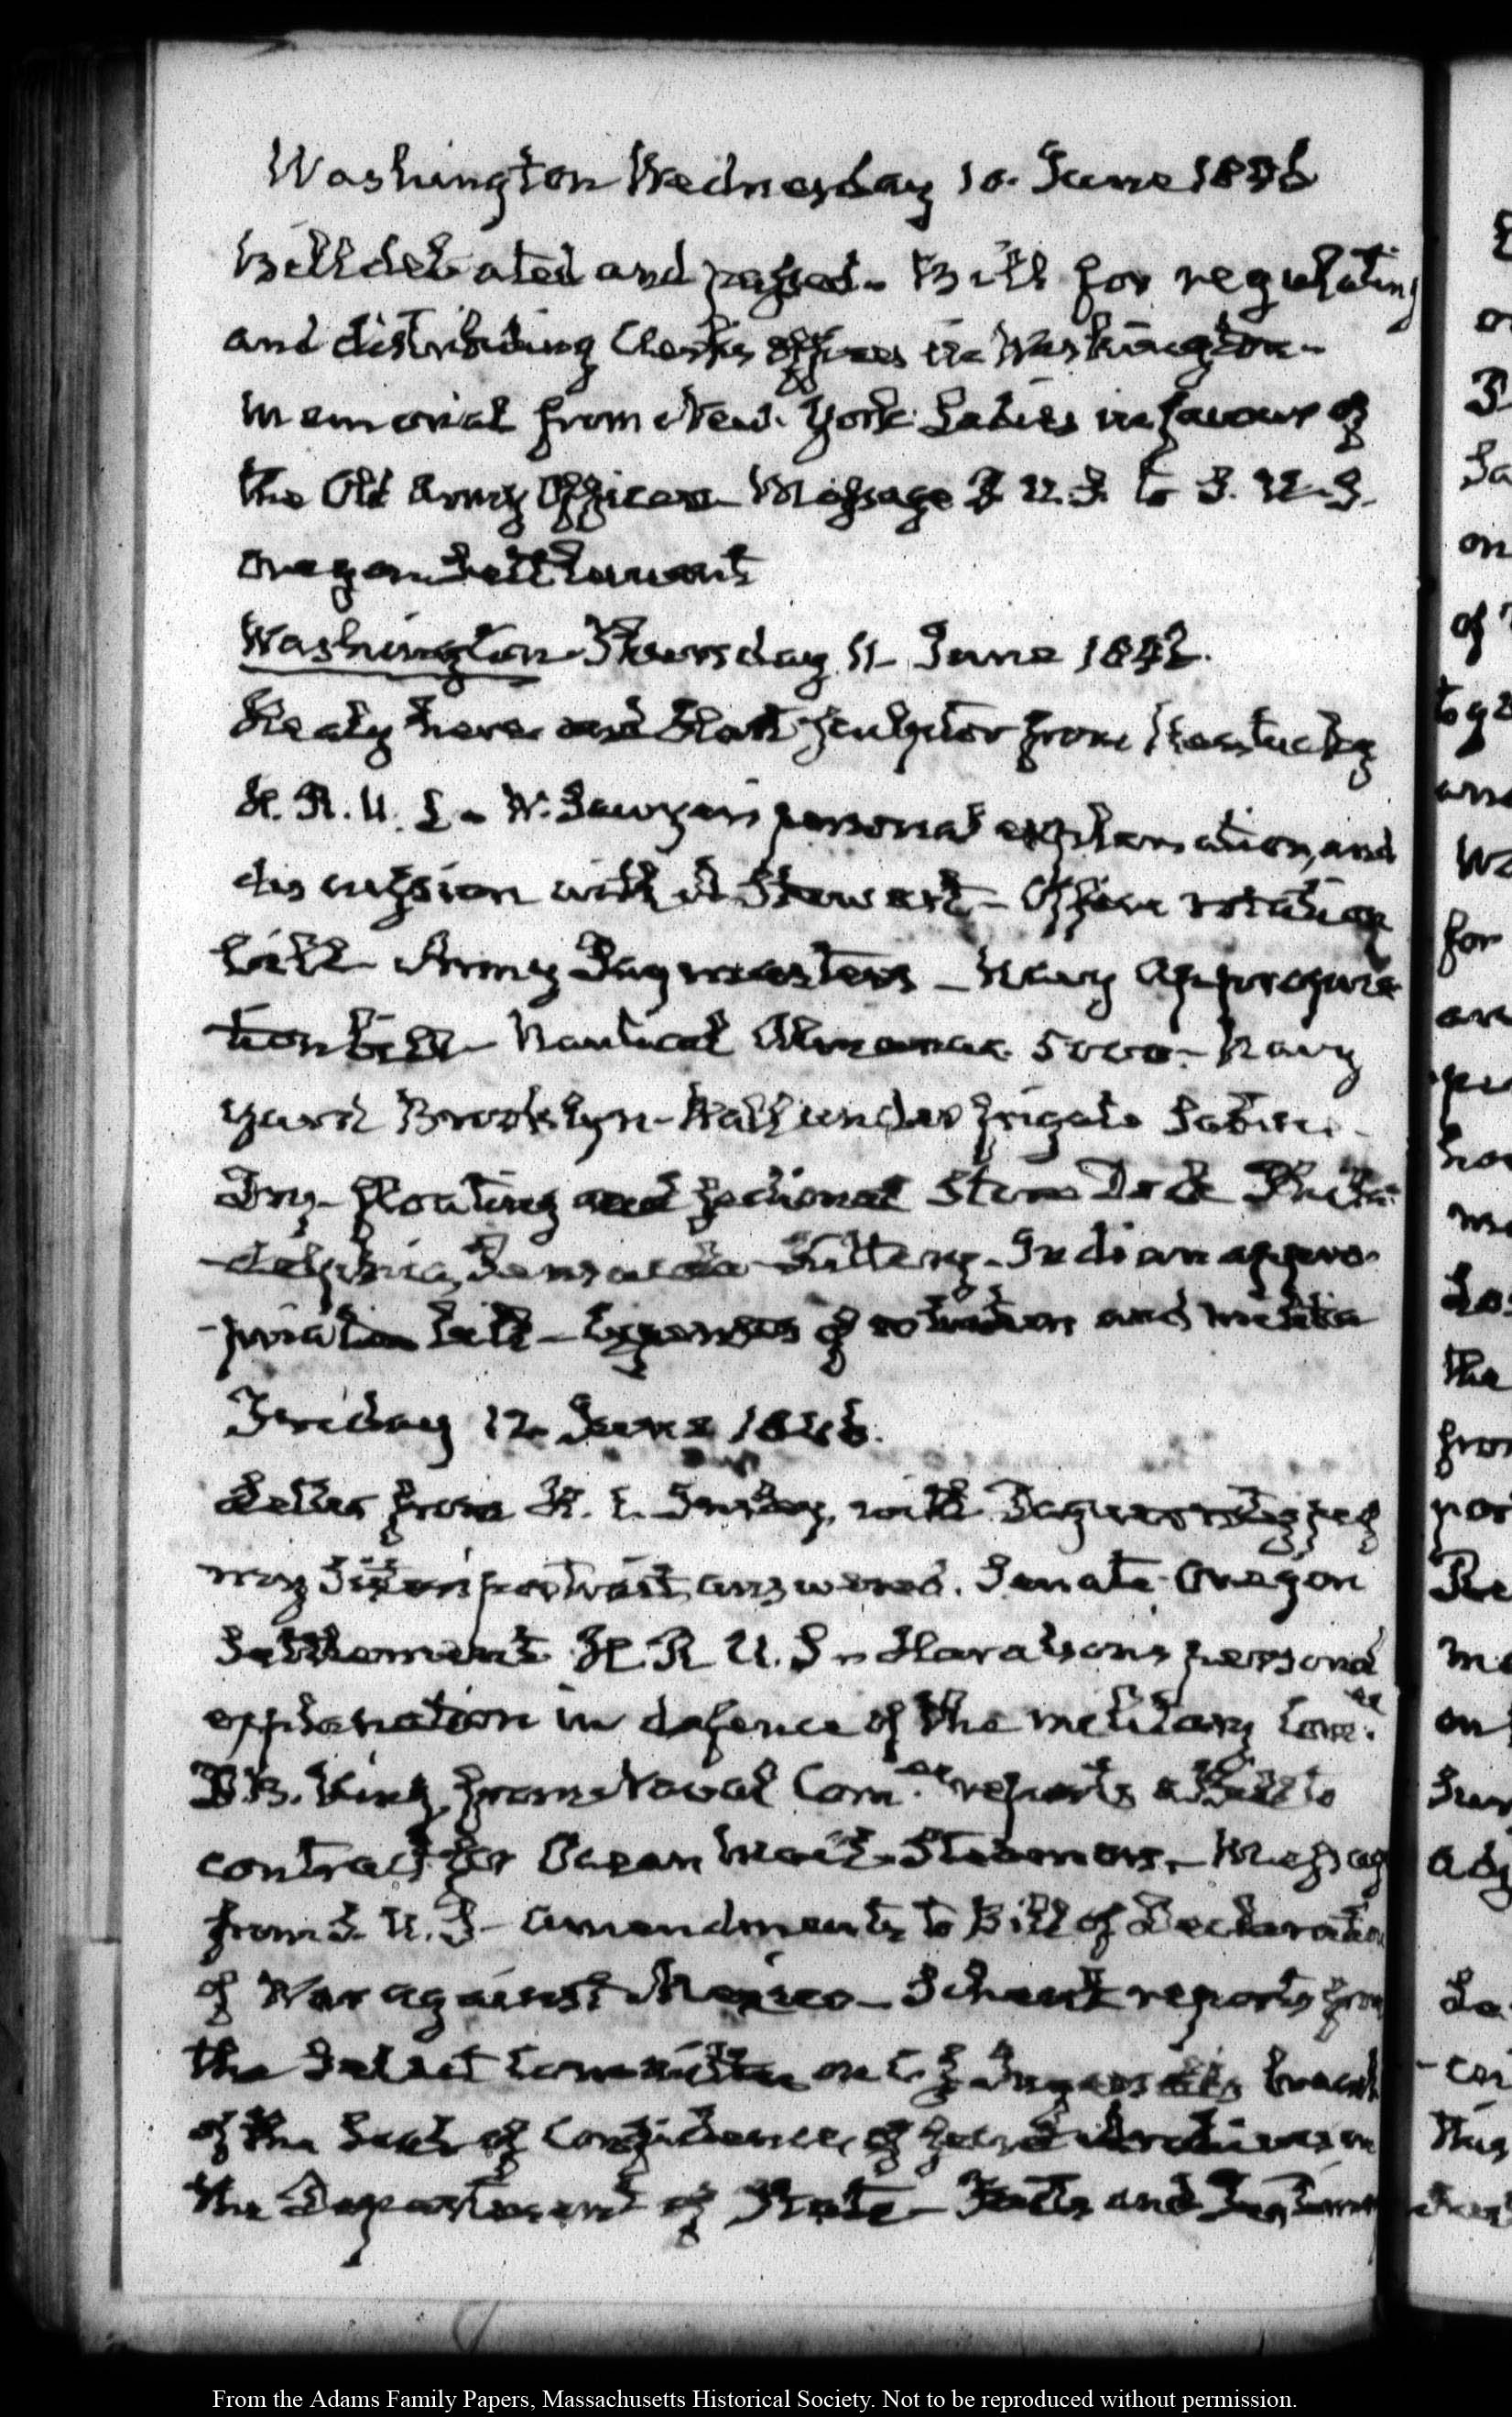 Washington Wednesday 10. June 1846
Bill debated and passed. Bill for regulating
and distributing Clerks offices in Washington-
Memorial from New York Ladies in favour of
the Old Army Officers Message P. U.S. to S. U.S.
Oregon Settlement
Washington Thursday 11 June 1846.
Healy here and Hart sculptor from Kentucky
H. R. U. S - W. Sawyer's personal explanation, and
discussion with A Stewart - Office rotation
bill Army Paymasters - Navy Appropria-
tion bill - Nautical Almanac 5000 - Navy
yard Brooklyn - Wall under frigate Sabine -
Dry floating and sectional Dock Phila-
-delphia, Pensacola Kittery - Indian appro-
-priation bill - Expenses of rotation and militia
Friday 12. June 1846.
Letter from H. L. with Daguerreotyped
my portrait, answered. Senate Oregon
Settlement H. R U. S - Haralson's personal
explanation in defence of the military Comee.
T.B. King from Naval Comee. reports a Bill to
contract for Ocean Mail Steamers, - Message
from P. U.S - amendments to Bill of Declaration
of War against Mexico - Schenck reports from
the Select Committee on C. J Ingersoll's breach
of the Seal of Confidence, of secret in
the Department of State - Facts and